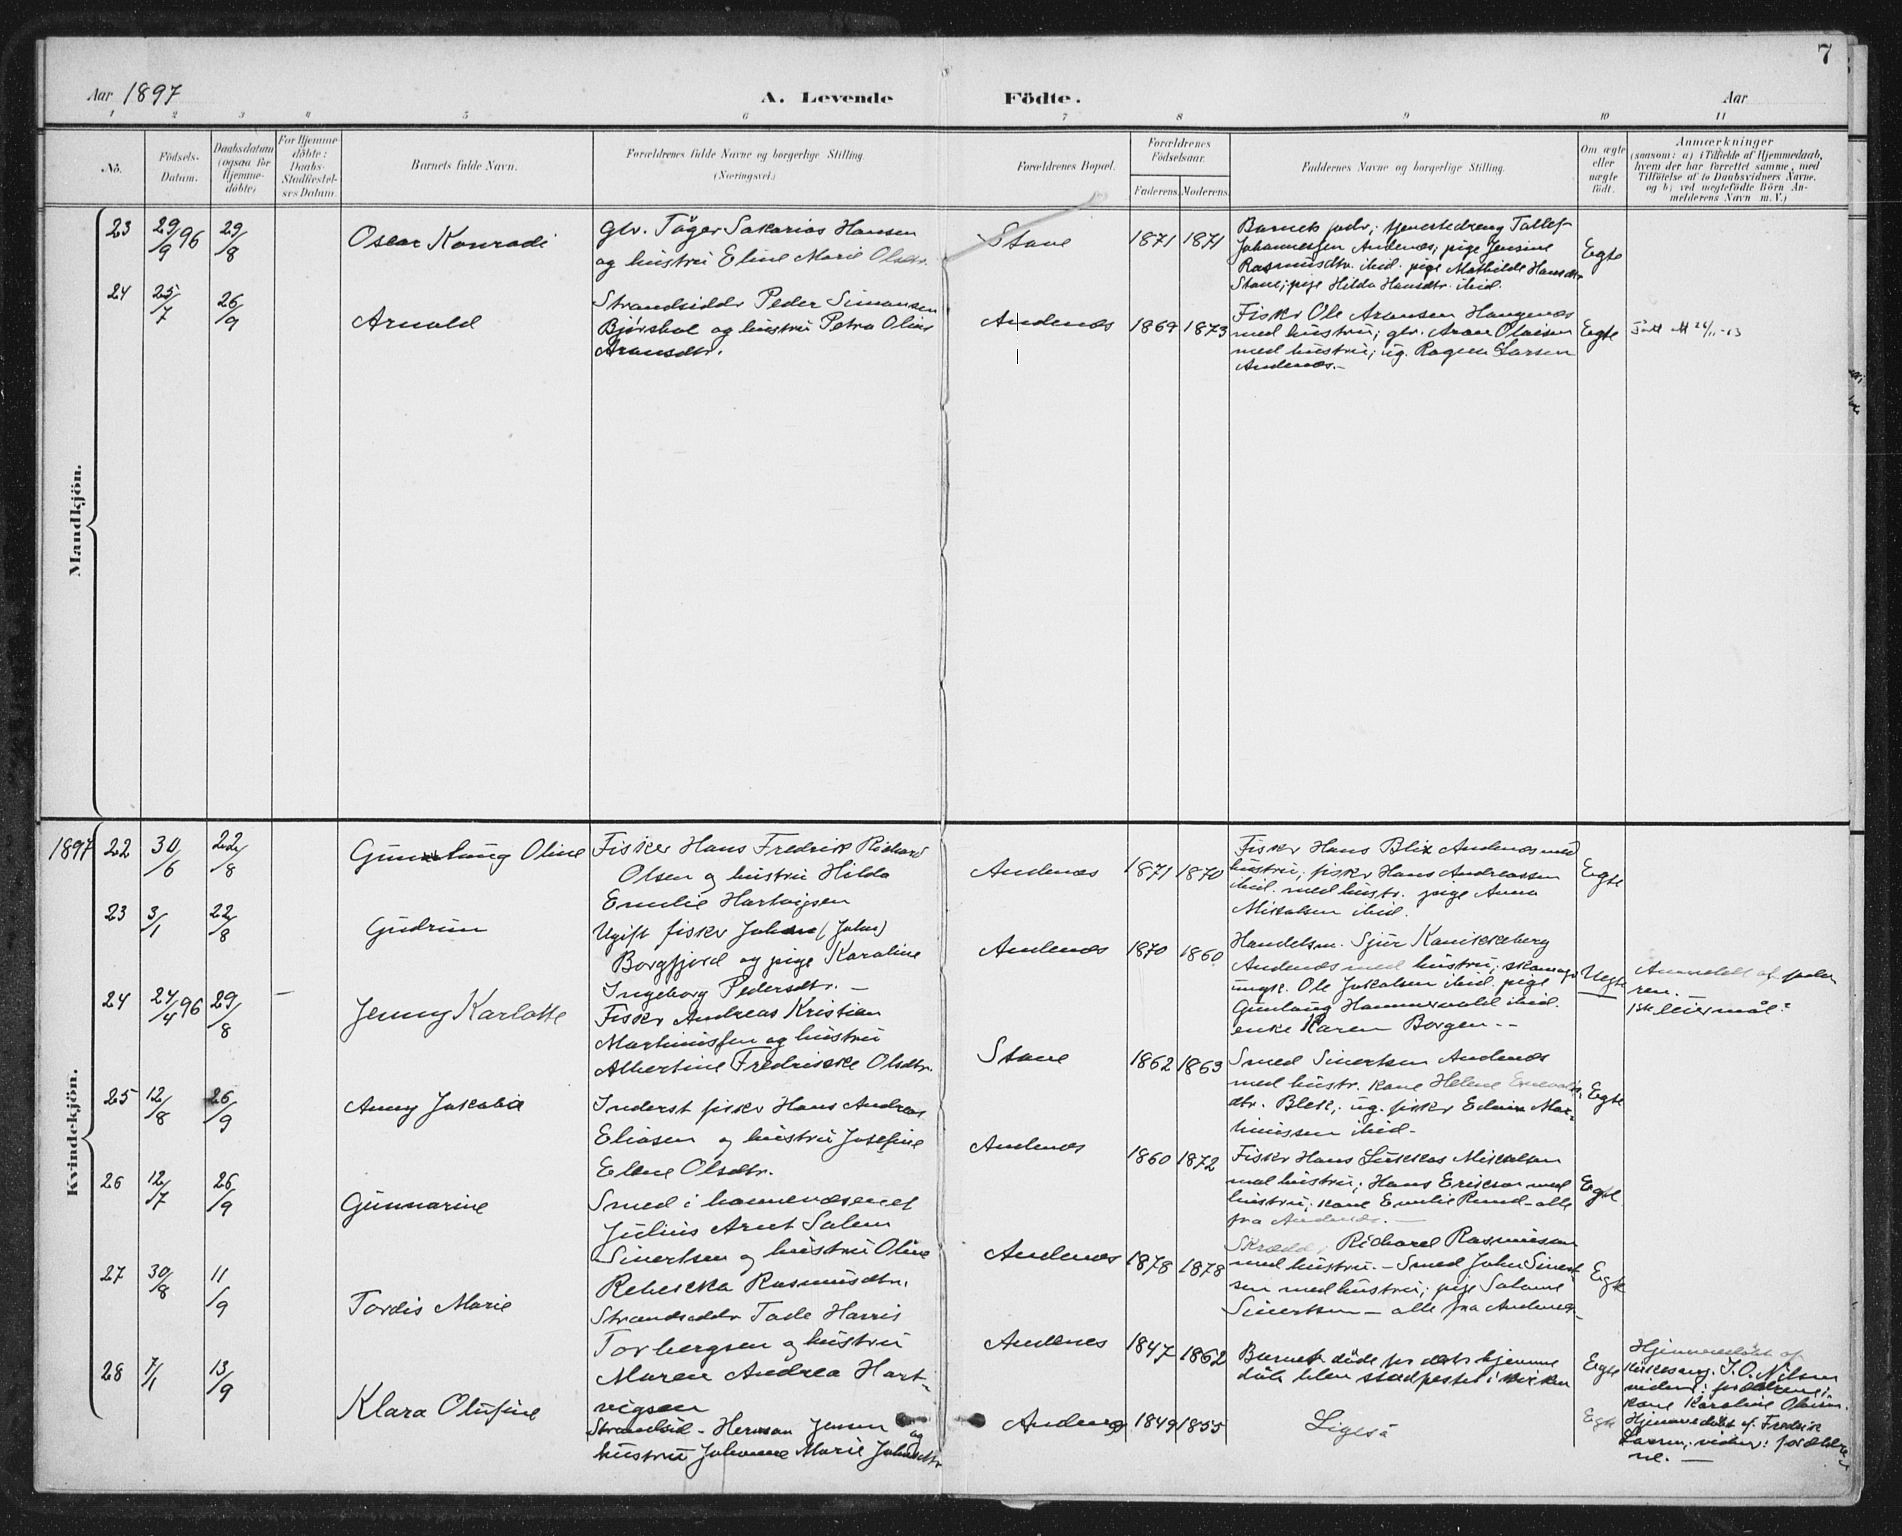 7
Aar 1897 A. Levende Födte. Aar
1 2 3 4 5 6 7 8 9 10 11
No. Födsels-Datum. Daabsdatum (ogsaa for Hjemmedöbte) For Hjemmedöbte: Daabs-Stadfæstelses Datum. Barnets fulde Navn. Forældrenes fulde Navne og borgerlige Stilling. (Næringsvei.) Forældrenes Bopæl. Forældrenes Födselsaar. Faderens Moderens Faddernes Navne og borgerlige Stilling. Om ægte eller uægte födt. Anmærkninger (saasom: a) i Tilfælde af Hjemmedaab, hvem der har forrettet samme, med Tilföielse af to Daabsvidners Navne, og b) ved uægtefödte Börn Anmelderens Navn m. V.)
Mandkjön.
23 29/9 96 29/8 Oscar Konradi
gbr. Töger Sakarias Hansen
og hustru Eline Marie Olsdtr.
Stave 1871 1871
Barnets fadr; tjenestedreng Tallef
Johannessen Andenæs; pige Jensine
Rasmusdtr. ibid. pige Mathilde Hansdtr
Stave; pige Hilda Hansdtr. ibid.
Egte
24 25/7 26/9 Arnold
Strandsiddr Peder Simonsen
Bjørskal og hustru Petra Oline
Aronsdtr.
Andenæs 1869 1873
Fiskr Ole Aronsen Haugenæs
med hustru; gbr. Aron Olaisen
med hustru; ug. Ragnv Larsen
Andenæs.-
Egte
Kvindekjön.
1897 22 30/6 22/8 Gunnlaug Oline
Fisker Hans Fredrik Richard
Olsen og hustru Hilda
Emilie Hartvigsen
Andenæs 1871 1870
Fiskr Hans Blix Andenæs med
hustru; fiskr Hans Andreassen
ibid. med hustr. pige Anna
Mikalsen ibid.
Egte
23 3/1 22/8 Gudrun
Ugift fiskr Johan (John)
Borgfjord og pige Karoline
Ingeborg Pedersdtr. -
Andenæs 1870 1860
Handelsm. Sjur Kanikkeberg
Andenæs med hustru; skomagr
ungk. Ole Jakobsen ibid. pige
Gunlaug Hammervold ibid.
enke Karen Borgen --
Uegte
Anmeldt af fade-
ren. -
1ste leiermål?
24 24/4 96 29/8 - Jenny Karlotte
Fiskr Andreas Kristian
Martinussen og hustru
Albertine Fredrikke Olsdtr.
Stave 1862 1863
Smed Sivertsen Andenæs
med hustr. kone Helene
dtr. Blek; ug. fiskr Edvin Mar-
tinussen ibid-
Egte
25 12/8 26/9 Anny Jakobia
Inderst fiskr Hans Andreas
Eliasen og hustru Josefine
Elene Olsdtr.
Andenæs 1860 1872
Fiskr Hans Lukkas Mikalsen
med hustru; Hans Eriksen med
hustru; kone Emilie Rund - alle
fra Andenæs. -
Egte
26 12/7 26/9 Gunnarine
Smed i havnevæsenet
Julius Arnt Salem
Sivertsen og hustru Oline
Rebekka Rasmusdtr.
Andenæs 1878 1878
Skrædd; Richard Rasmussen
med hustru. - Smed John Sivert-
sen med hustru; pige Salome
Sivertsen - alle fra Andenæs
Egte
27 30/8 11/9 Tordis Marie
Strandsiddr Tade Harris
Torbergsen og hustru
Maren Andrea Hart-
vigsen
Andenes 1847 1862
Barnet döde för dets hjemme
dåb blev stadfestet i kirken
Egte
Hjemmedöbt af
kirkesang. J. O. Nilsen
vidner: forældrene;
kone Karoline Olaisen.
28 7/1 13/9 Klara Olufine
Strandsid - Herman Jensen og
hustru Johanne Marie Johansdtr.
Andenes 1849 1855
Ligeså
Egte
Hjemmedöbt af Fredrik
Larsen; vidner: forældre-
ne. -